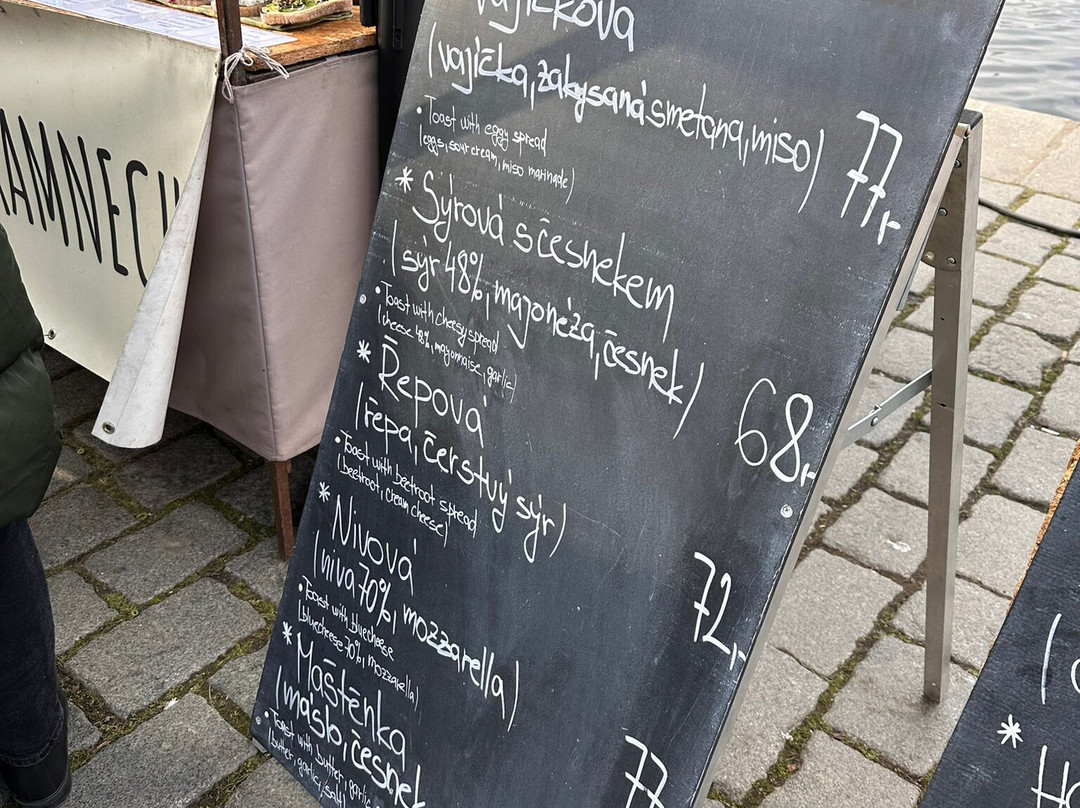 Vajíčková
(vajíčka, zakysaná smetana, miso)
77,-
• Toast with eggy spread
(eggs, sour cream, miso marinade)
* Sýrová s česnekem
(sýr 48%, majonéza, česnek)
68,-
• Toast with cheesy spread
(cheese 48%, mayonnaise, garlic)
* Řepová
(řepa, čerstvý sýr)
72,-
• Toast with beetroot spread
(beetroot, cream cheese)
* Nivová
(niva 70%, mozzarella)
77
• Toast with bluecheese
(bluecheese 70%, mozzarella)
* Maštěnka
(máslo, česnek
• Toast with butter, garlic
(butter, garlic, salt)
AMNECH
*